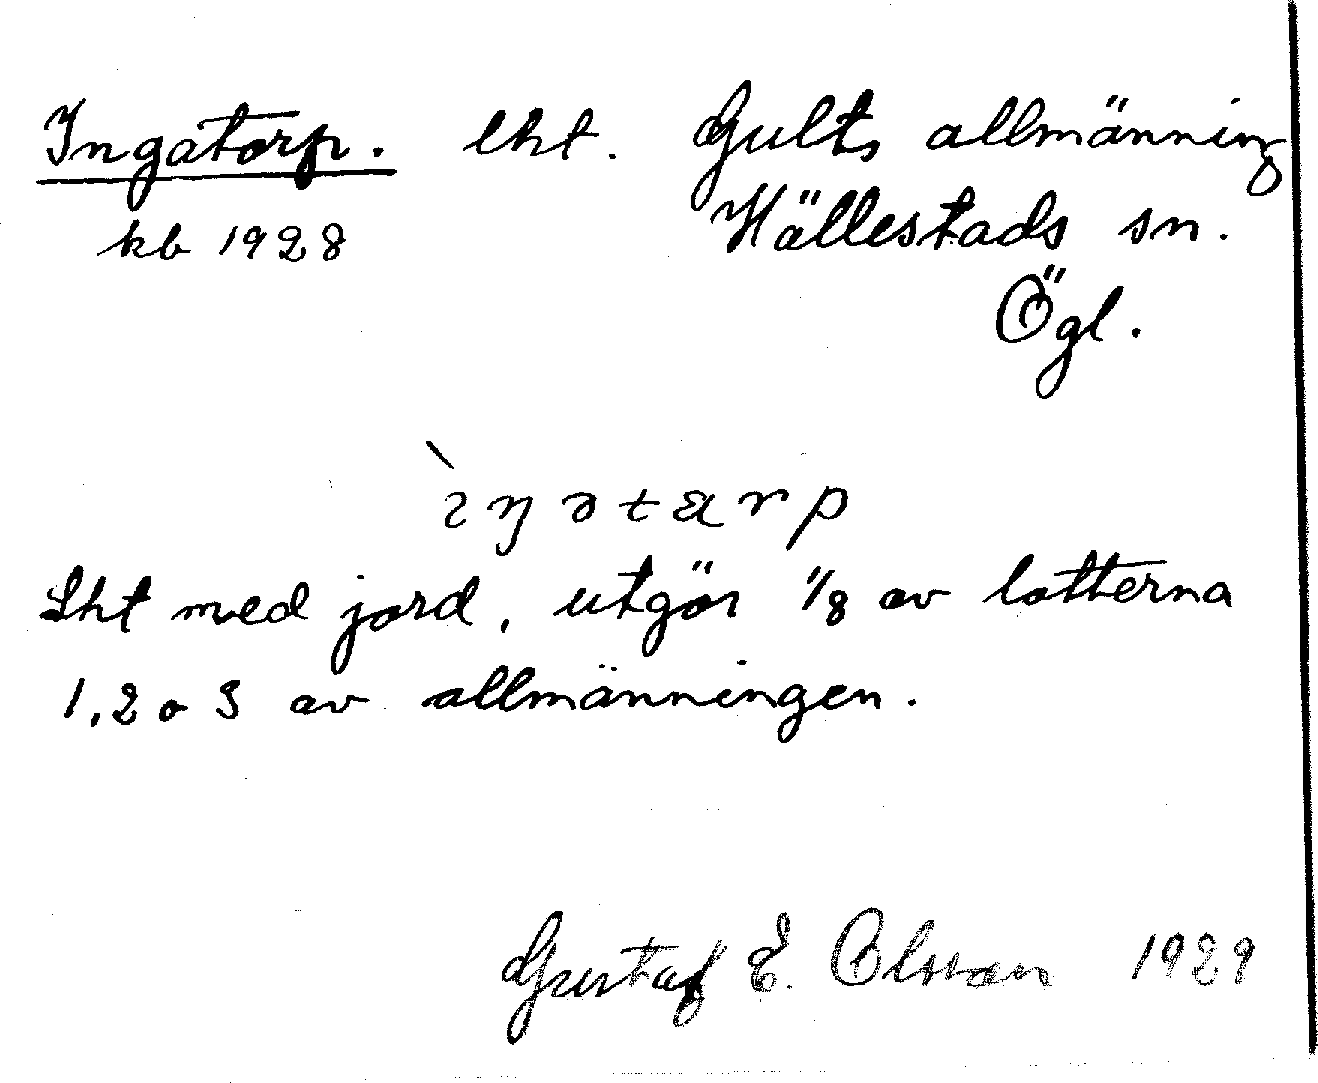 Ingatorp. lht. Gults allmänning
kb 1928 Hällestads sn.
Ögl.
Lht med jord, utgör 1/8 av lotterna
1, 2 o 3 av allmänningen.
Gustaf E. Olsson 1929